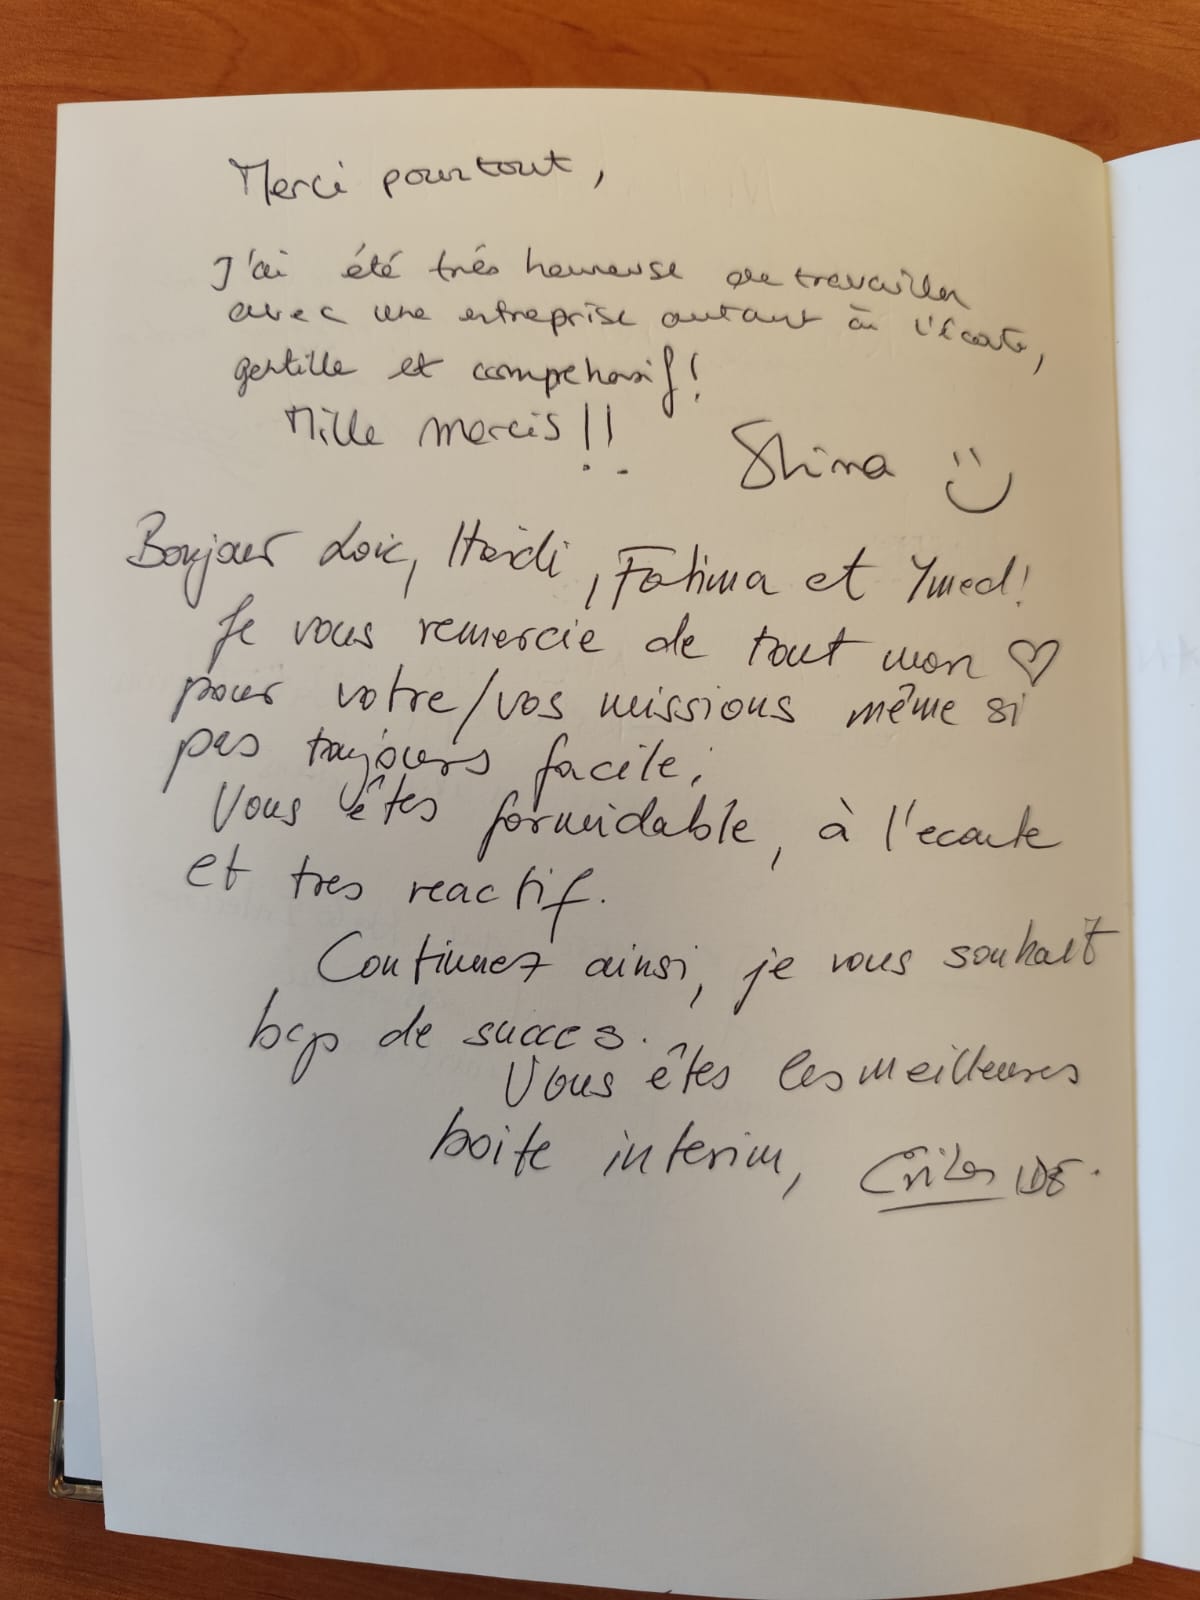 Merci pour tout,
J'ai été très heureuse de travailler
avec une entreprise autant à l'écoute,
gentille et comprehensif!
Mille mercis!!
Shina
Bonjour Loic, Heidi, Fatima et Ymed!
Je vous remercie de tout mon ♡
pour votre/vos missions même si
pas toujours facile.
Vous êtes formidable, à l'ecoute
et tres reactif.
Continuez ainsi, je vous souhait
bcp de succes.
Vous êtes les meilleures
boite interim,